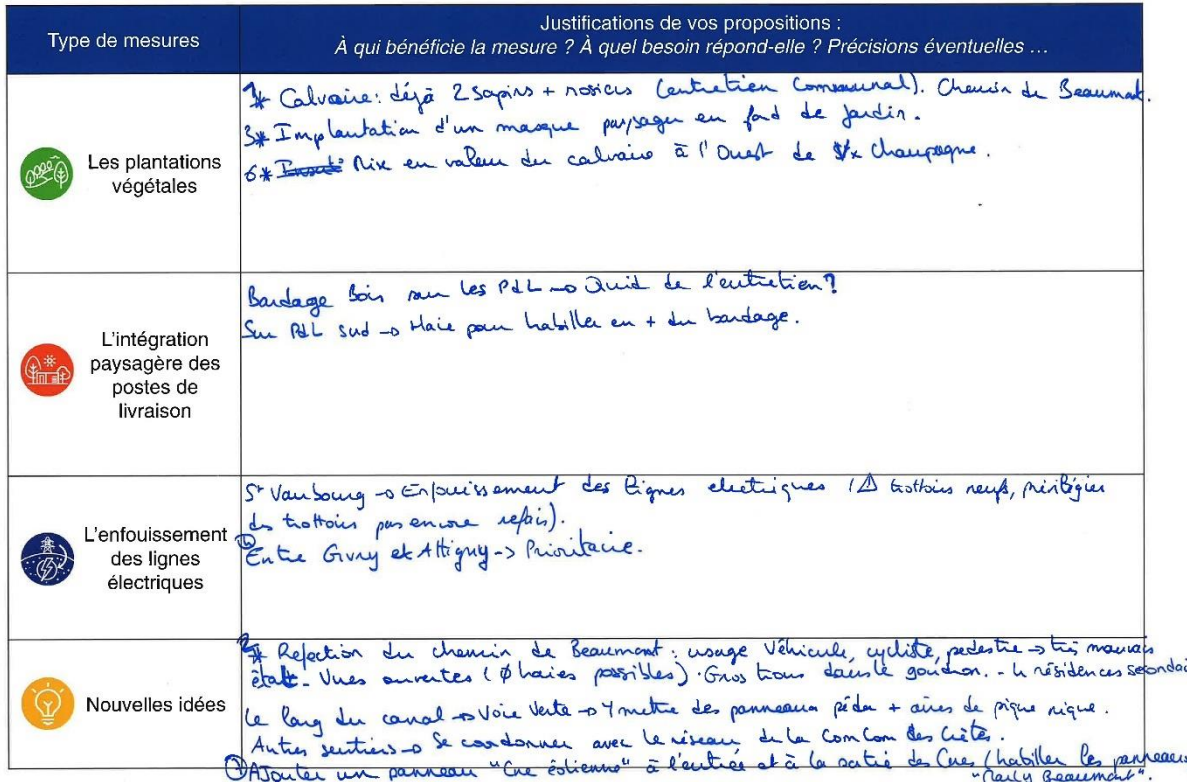 Type de mesures
Justifications de vos propositions :
À qui bénéficie la mesure ? À quel besoin répond-elle ? Précisions éventuelles …
Les plantations
végétales
1* Calvaire : déjà 2 sapins + rosiers (entretien communal). Chemin de Beaumont.
3* Implantation d'un masque paysager en fond de jardin.
6* Mise en valeur du calvaire à l'Ouest de Champagne.
L'intégration
paysagère des
postes de
livraison
Bardage Bois sur les PdL → Quid de l'entretien ?
Sur PdL sud → Haie pour habiller en + du bardage.
L'enfouissement
des lignes
électriques
St Vaubourg → Enfouissement des lignes electriques (⚠ trottoirs neufs, privilégier
des trottoirs pas encore refais).
Entre Givry et Attigny -> Prioritaire.
Nouvelles idées
2* Refection du chemin de Beaumont : usage Véhicule, cycliste, pedestre → très mauvais
état - Vues ouvertes (Ø haies possibles). Gros trous dans le goudron. - 4 résidences secondai
Le long du canal → Voie Verte → Y mettre des panneaux péda + aires de pique nique.
Autres sentiers → Se coordonner avec le réseau de la ComCom des Crêtes.
Ajouter un panneau "Cne éolienne" à l'entrée et à la sortie des Cnes (habiller les panneaux
Beaumont".